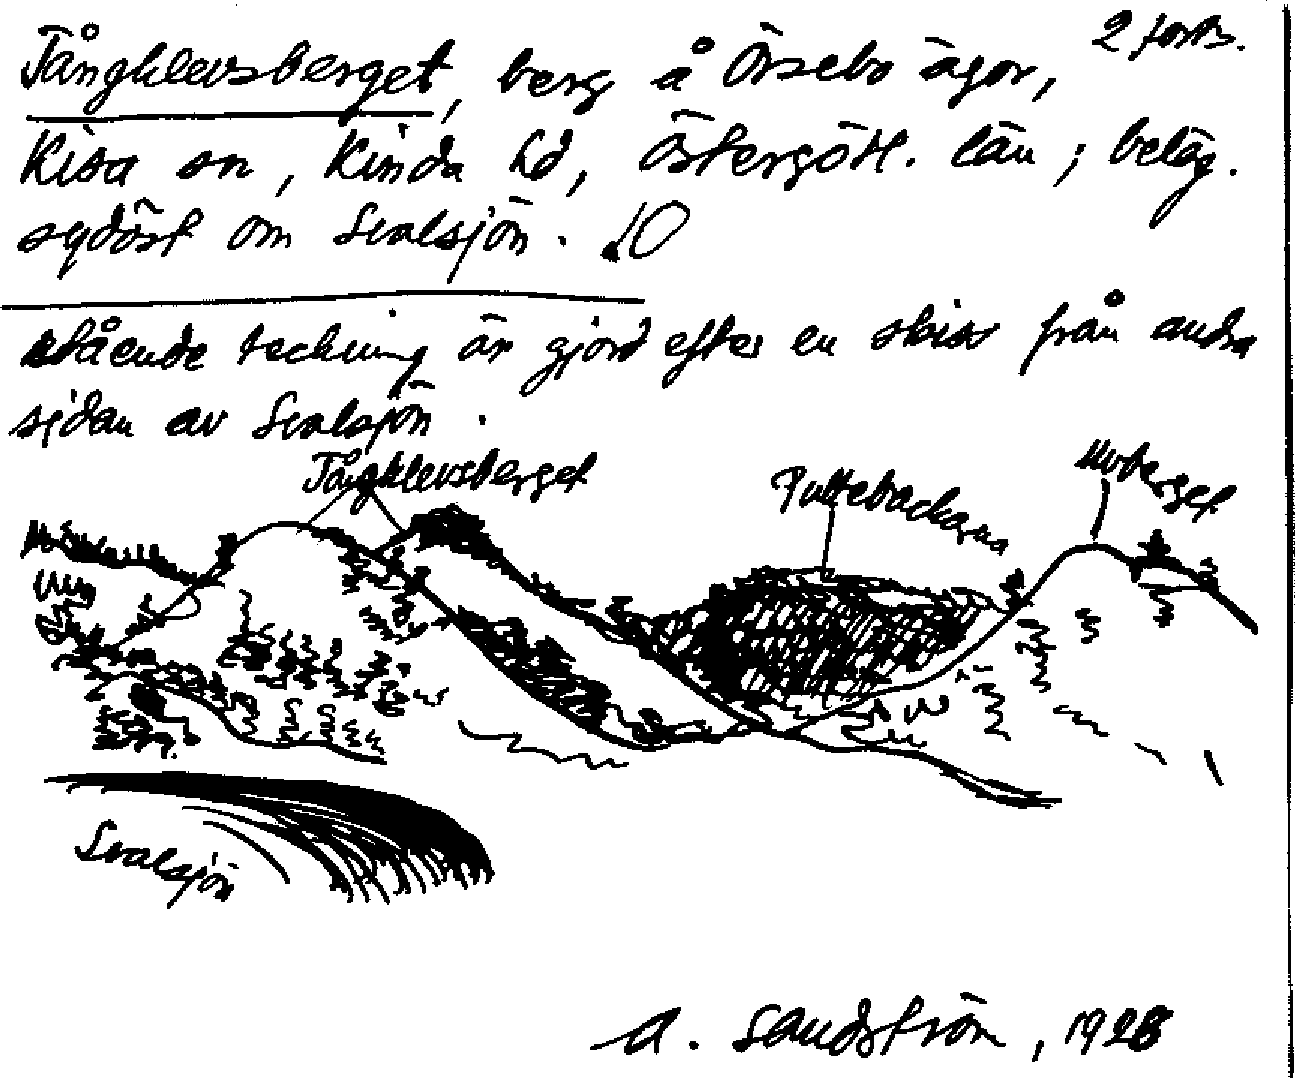 2 forts.
Tångklevsberget, berg å Örsebo ägor,
Kisa sn, Kinda hd, Östergötl. län; beläg.
sydöst om Svalsjön.
stående teckning är gjord efter en skiss från andra
sidan av Svalsjön.
Tångklevsberget
Puttebackarna
Moberget
Svalsjön
A. Sandström, 1928